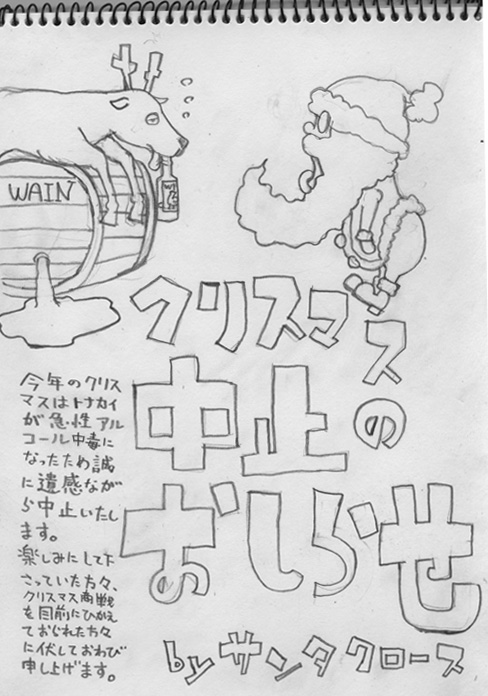 WAIN
クリスマスの
中止
おしらせ
by サンタクロース
今年のクリス
マスはトナカイ
が急性アル
コール中毒に
なったため誠
に遺感なが
ら中止いたし
ます。
楽しみにして下
さっていた方々、
クリスマス商戦
を目前にひかえ
ておられた方々
に伏しておわび
申し上げます。